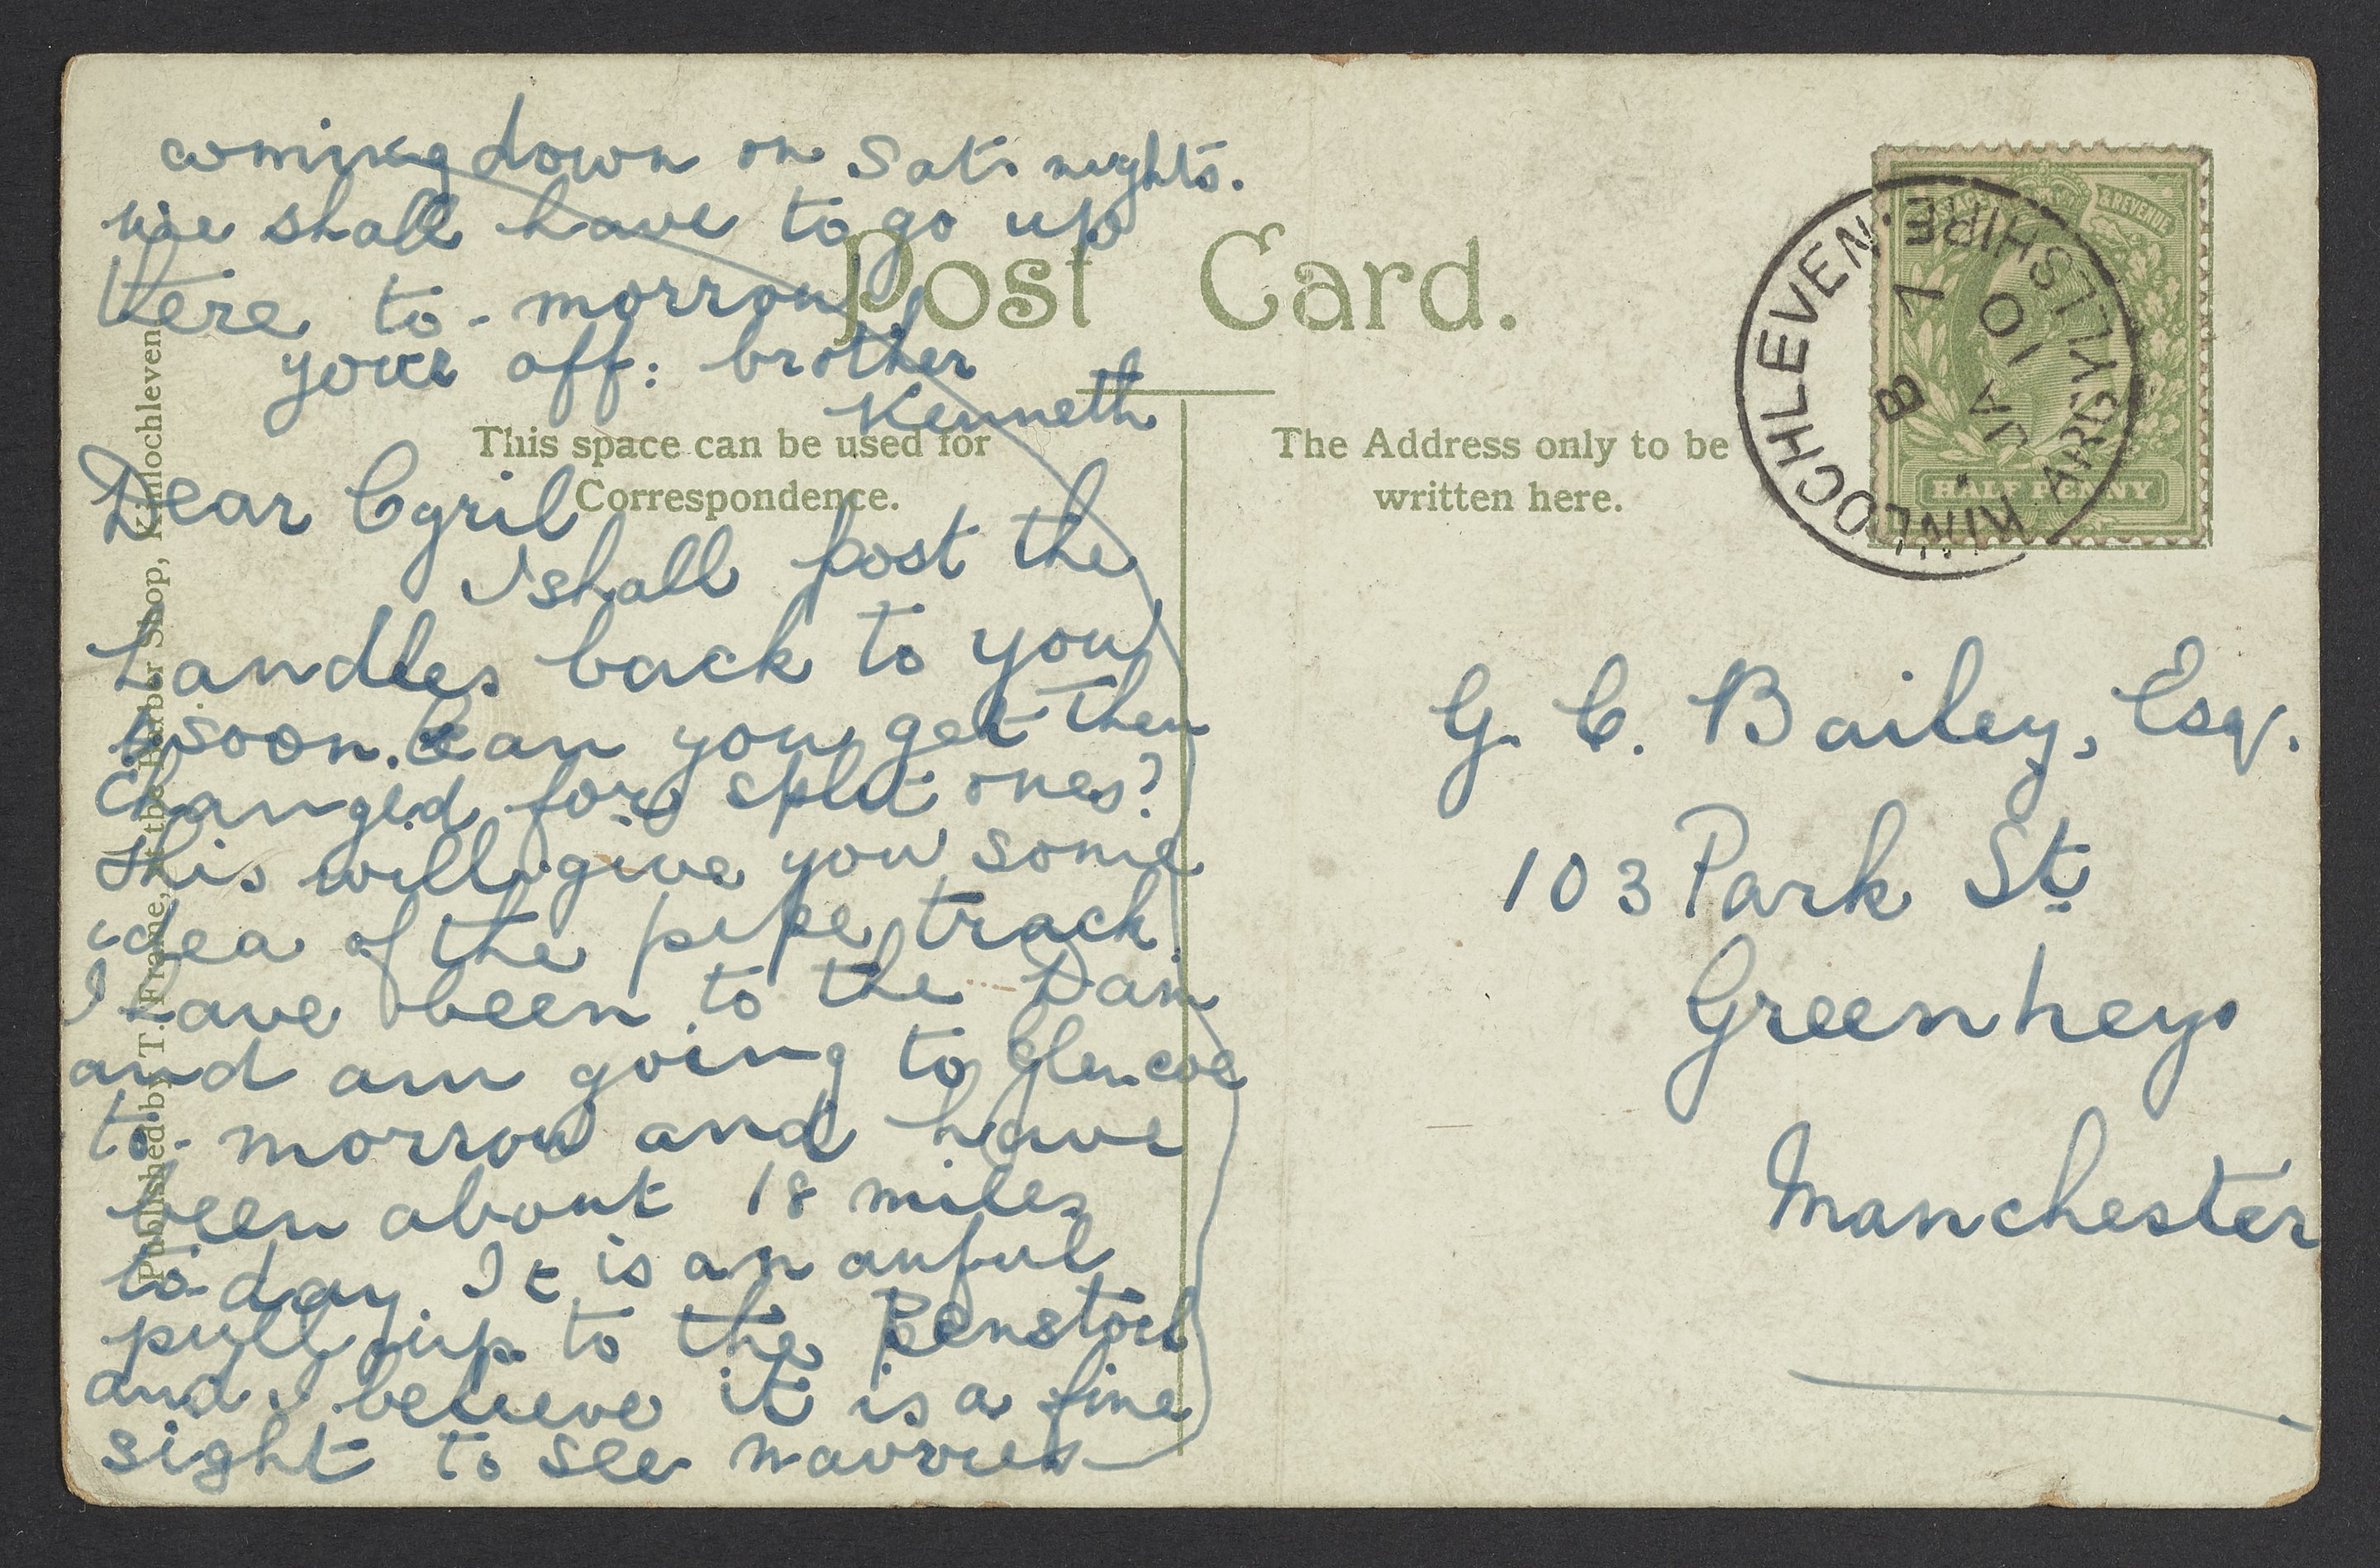 coming down on Sat. nights.
We shall have to go up
there to-morrow
your aff: brother
Kenneth
Post Card.
This space can be used for
Correspondence.
The Address only to be
written here.
Dear Cyril
I shall post the
Landles back to you
soon. Can you get them
changed for split ones?
This will give you some
idea of the pipe track
I have been to the Dam
and am going to Glencoe
to-morrow and have
been about 18 miles
to-day. It is an awful
pull up to the Penstock
and I believe it is a fine
sight to see navvies
G. C. Bailey, Esq.
103 Park St.
Greenheys
Manchester
Published by T. Frame, At the Barber Shop, Kinlochleven
KINLOCHLEVEN · ARGYLLSHIRE
B 7
JA 10
POSTAGE & REVENUE
HALF PENNY